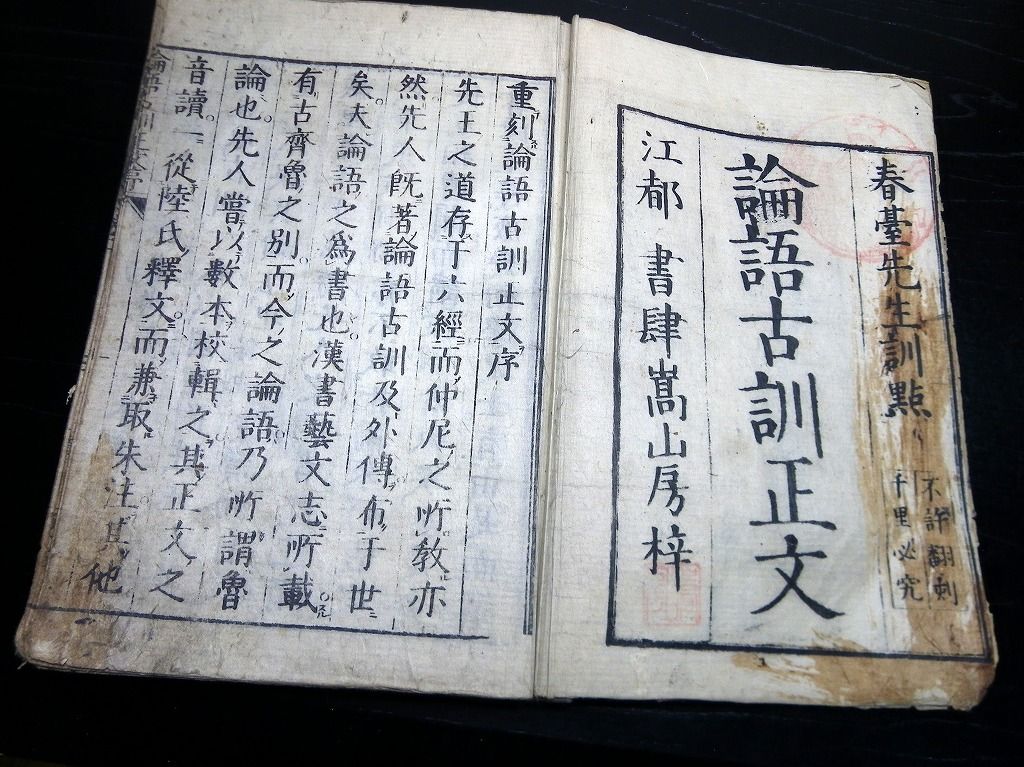 春臺先生訓點
不許翻刻
千里必究
論語古訓正文
江都 書肆嵩山房梓
重刻論語古訓正文序
先王之道存于六經而仲尼之所教亦
然先人既著論語古訓及外傳布于世
矣夫論語之爲書也漢書藝文志所載
有古齊魯之別而今之論語乃所謂魯
論也先人嘗以數本校輯之其正文之
音讀一從陸氏釋文而兼取朱注其他
論語古訓正文序